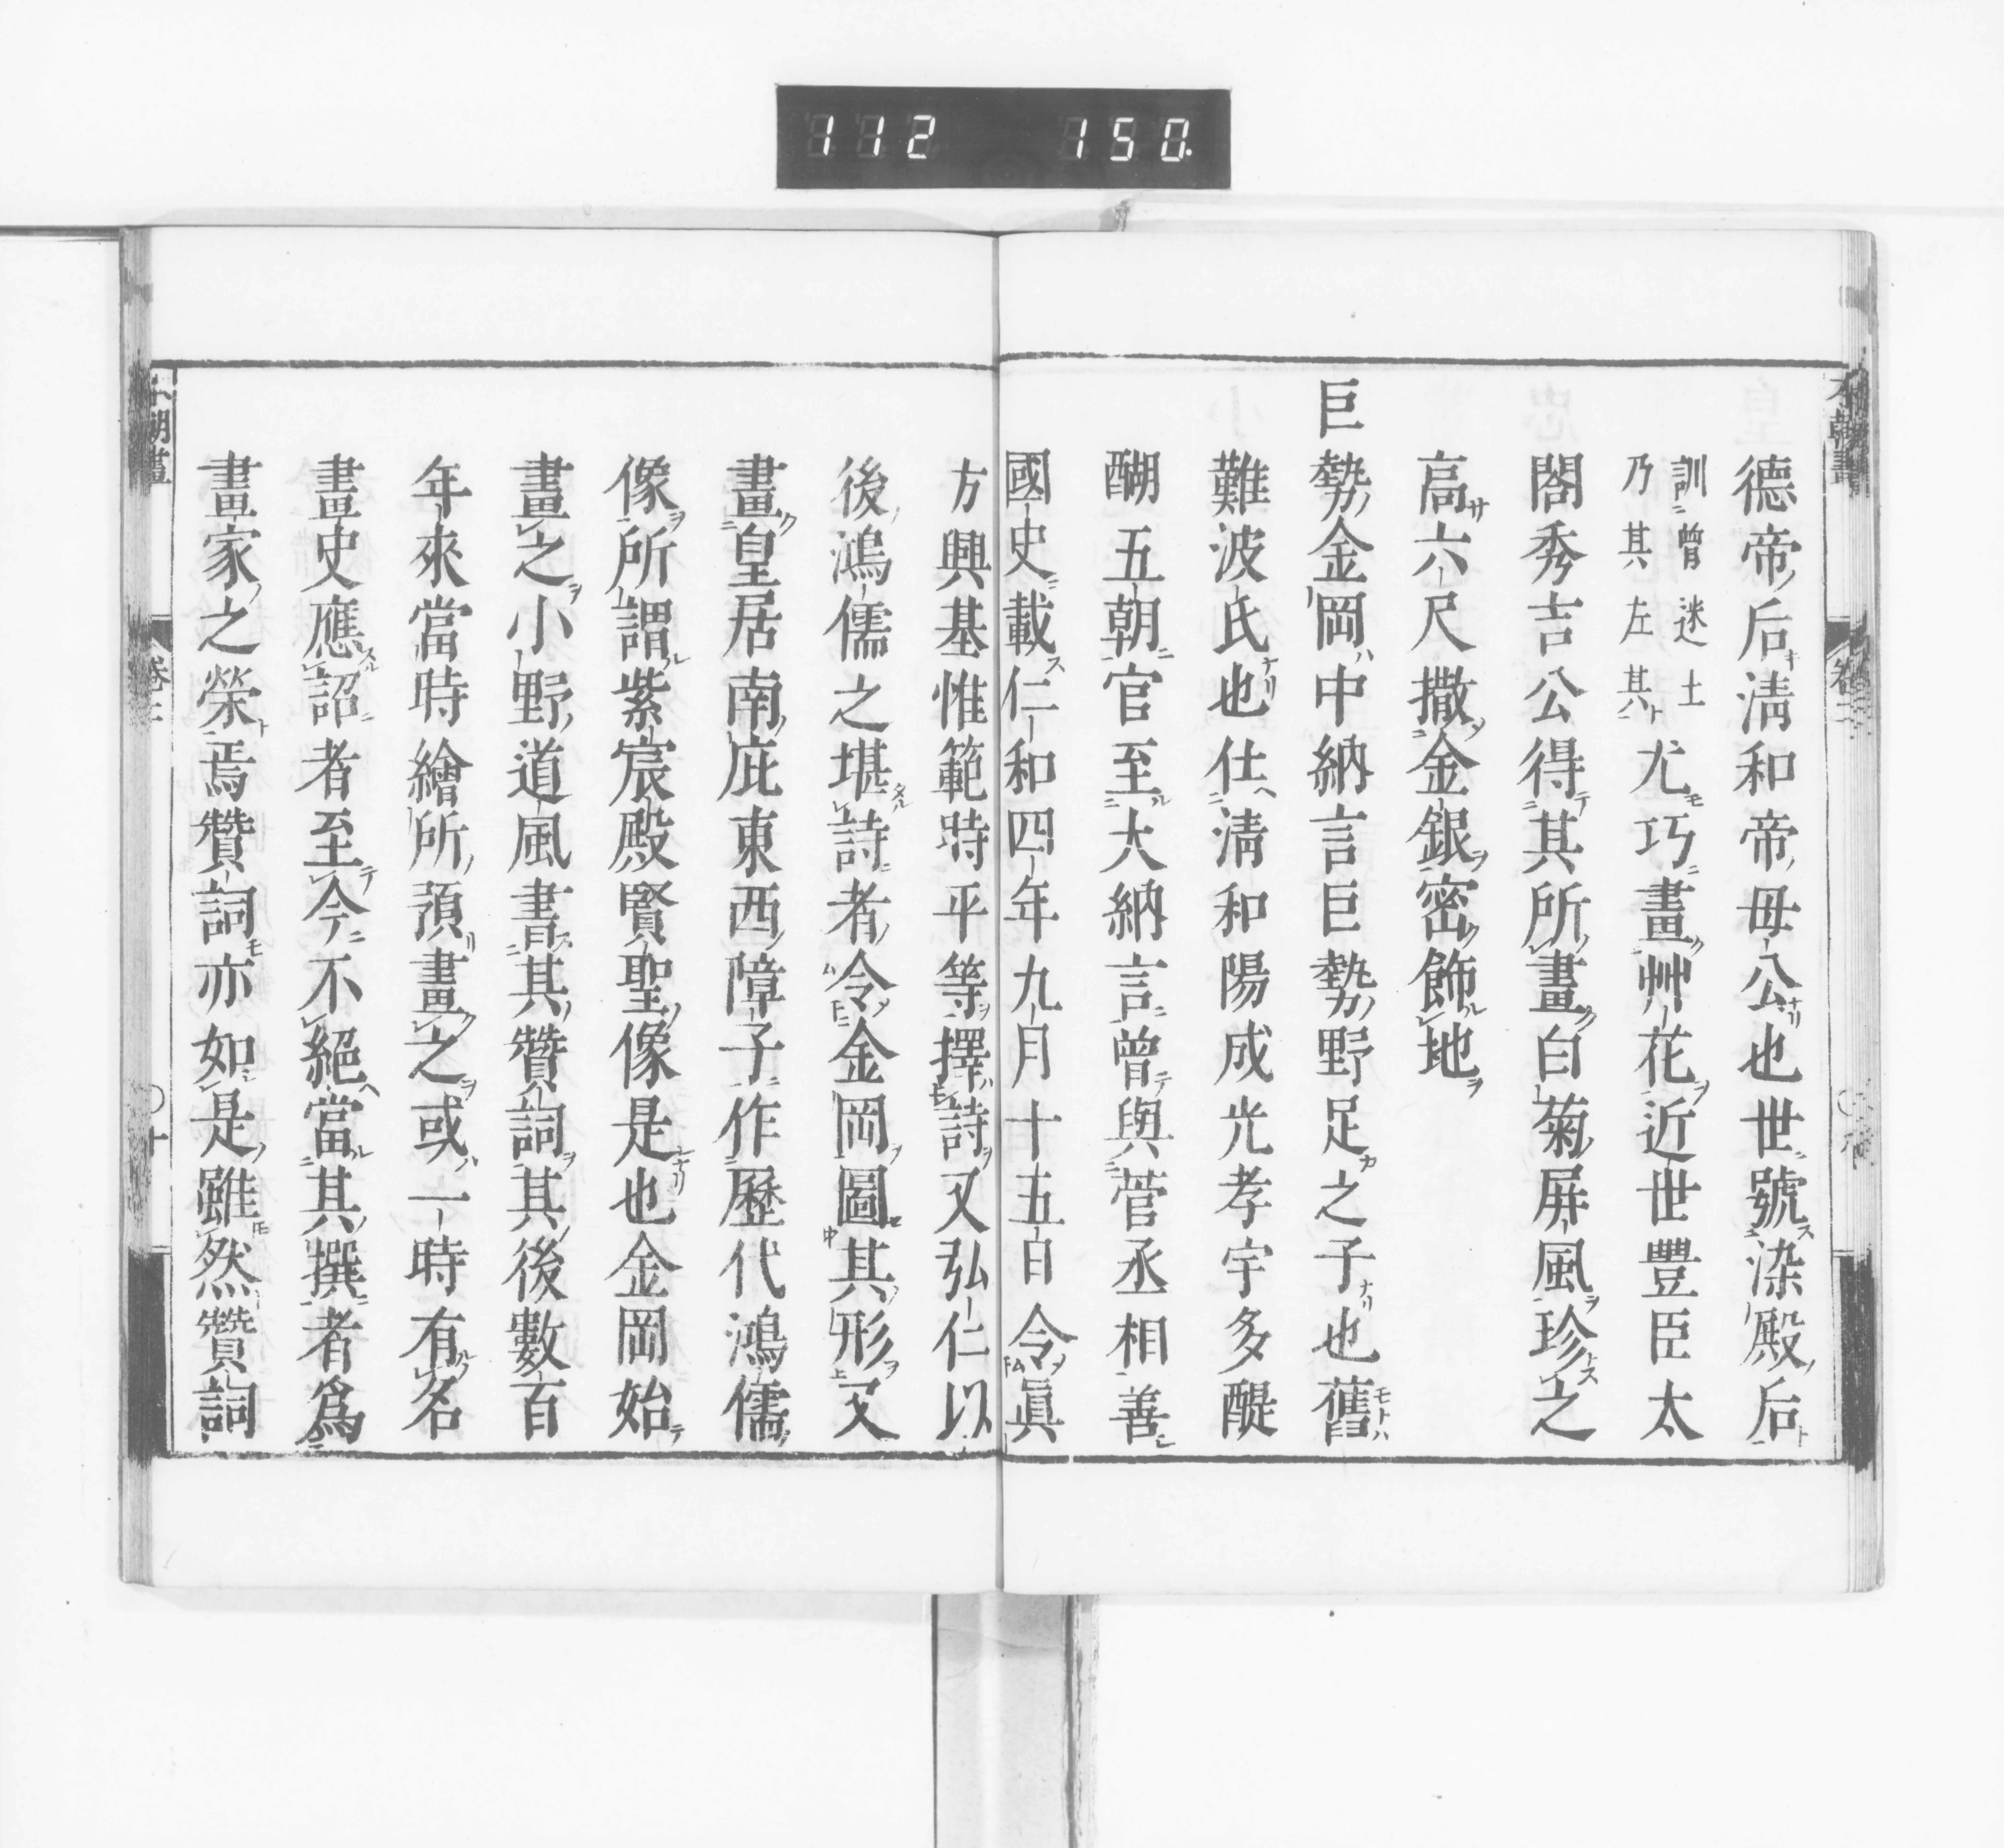 112 150.
德帝后淸和帝母公也世號染殿后
訓曾迷土
乃其左其
尤巧畫艸花近世豐臣太
閤秀吉公得其所畫白菊屏風珍之
高六尺撒金銀密飾地
巨勢金岡中納言巨勢野足之子也舊
難波氏也仕淸和陽成光孝宇多醍
醐五朝官至大納言曾與菅丞相善
國史載仁和四年九月十五日令眞
方興基惟範時平等擇詩又弘仁以
後鴻儒之堪詩者令金岡圖其形又
畫皇居南庇東西障子作歷代鴻儒
像所謂紫宸殿賢聖像是也金岡始
畫之小野道風書其贊詞其後數百
年來當時繪所預畫之或一時有名
畫史應詔者至今不絕當其撰者爲
畫家之榮焉贊詞亦如是雖然贊詞
本朝畫
卷二
十